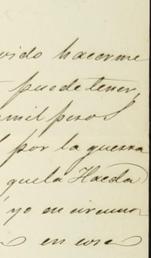 vido hacerme
puede tener,
mil pesos
por la guerra
que la Hacda
yo en circuns
en cose